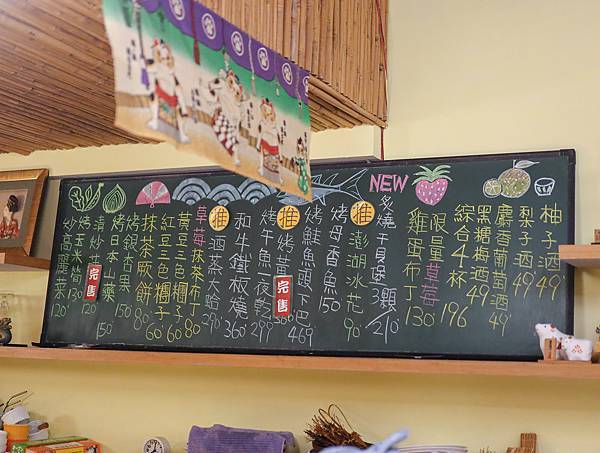 柚子酒 49
梨子酒 49
麝香葡萄酒 49
黑糖梅酒 49
綜合4杯 196
限量草莓
雞蛋布丁 130
NEW
炙燒干貝 3顆 210
推
澎湖水花 90
烤母香魚 150
烤鮭魚頭下巴
推
烤黃
完售
烤午魚一夜乾
和牛鐵板燒 360
推
酒蒸大蛤 290
草莓抹茶布丁 80
黃豆三色糰子 60
紅豆三色糰子 60
抹茶蕨餅 80
烤銀杏果 150
烤日本山藥 150
清炒
完售
烤玉米筍 130
炒高麗菜 120